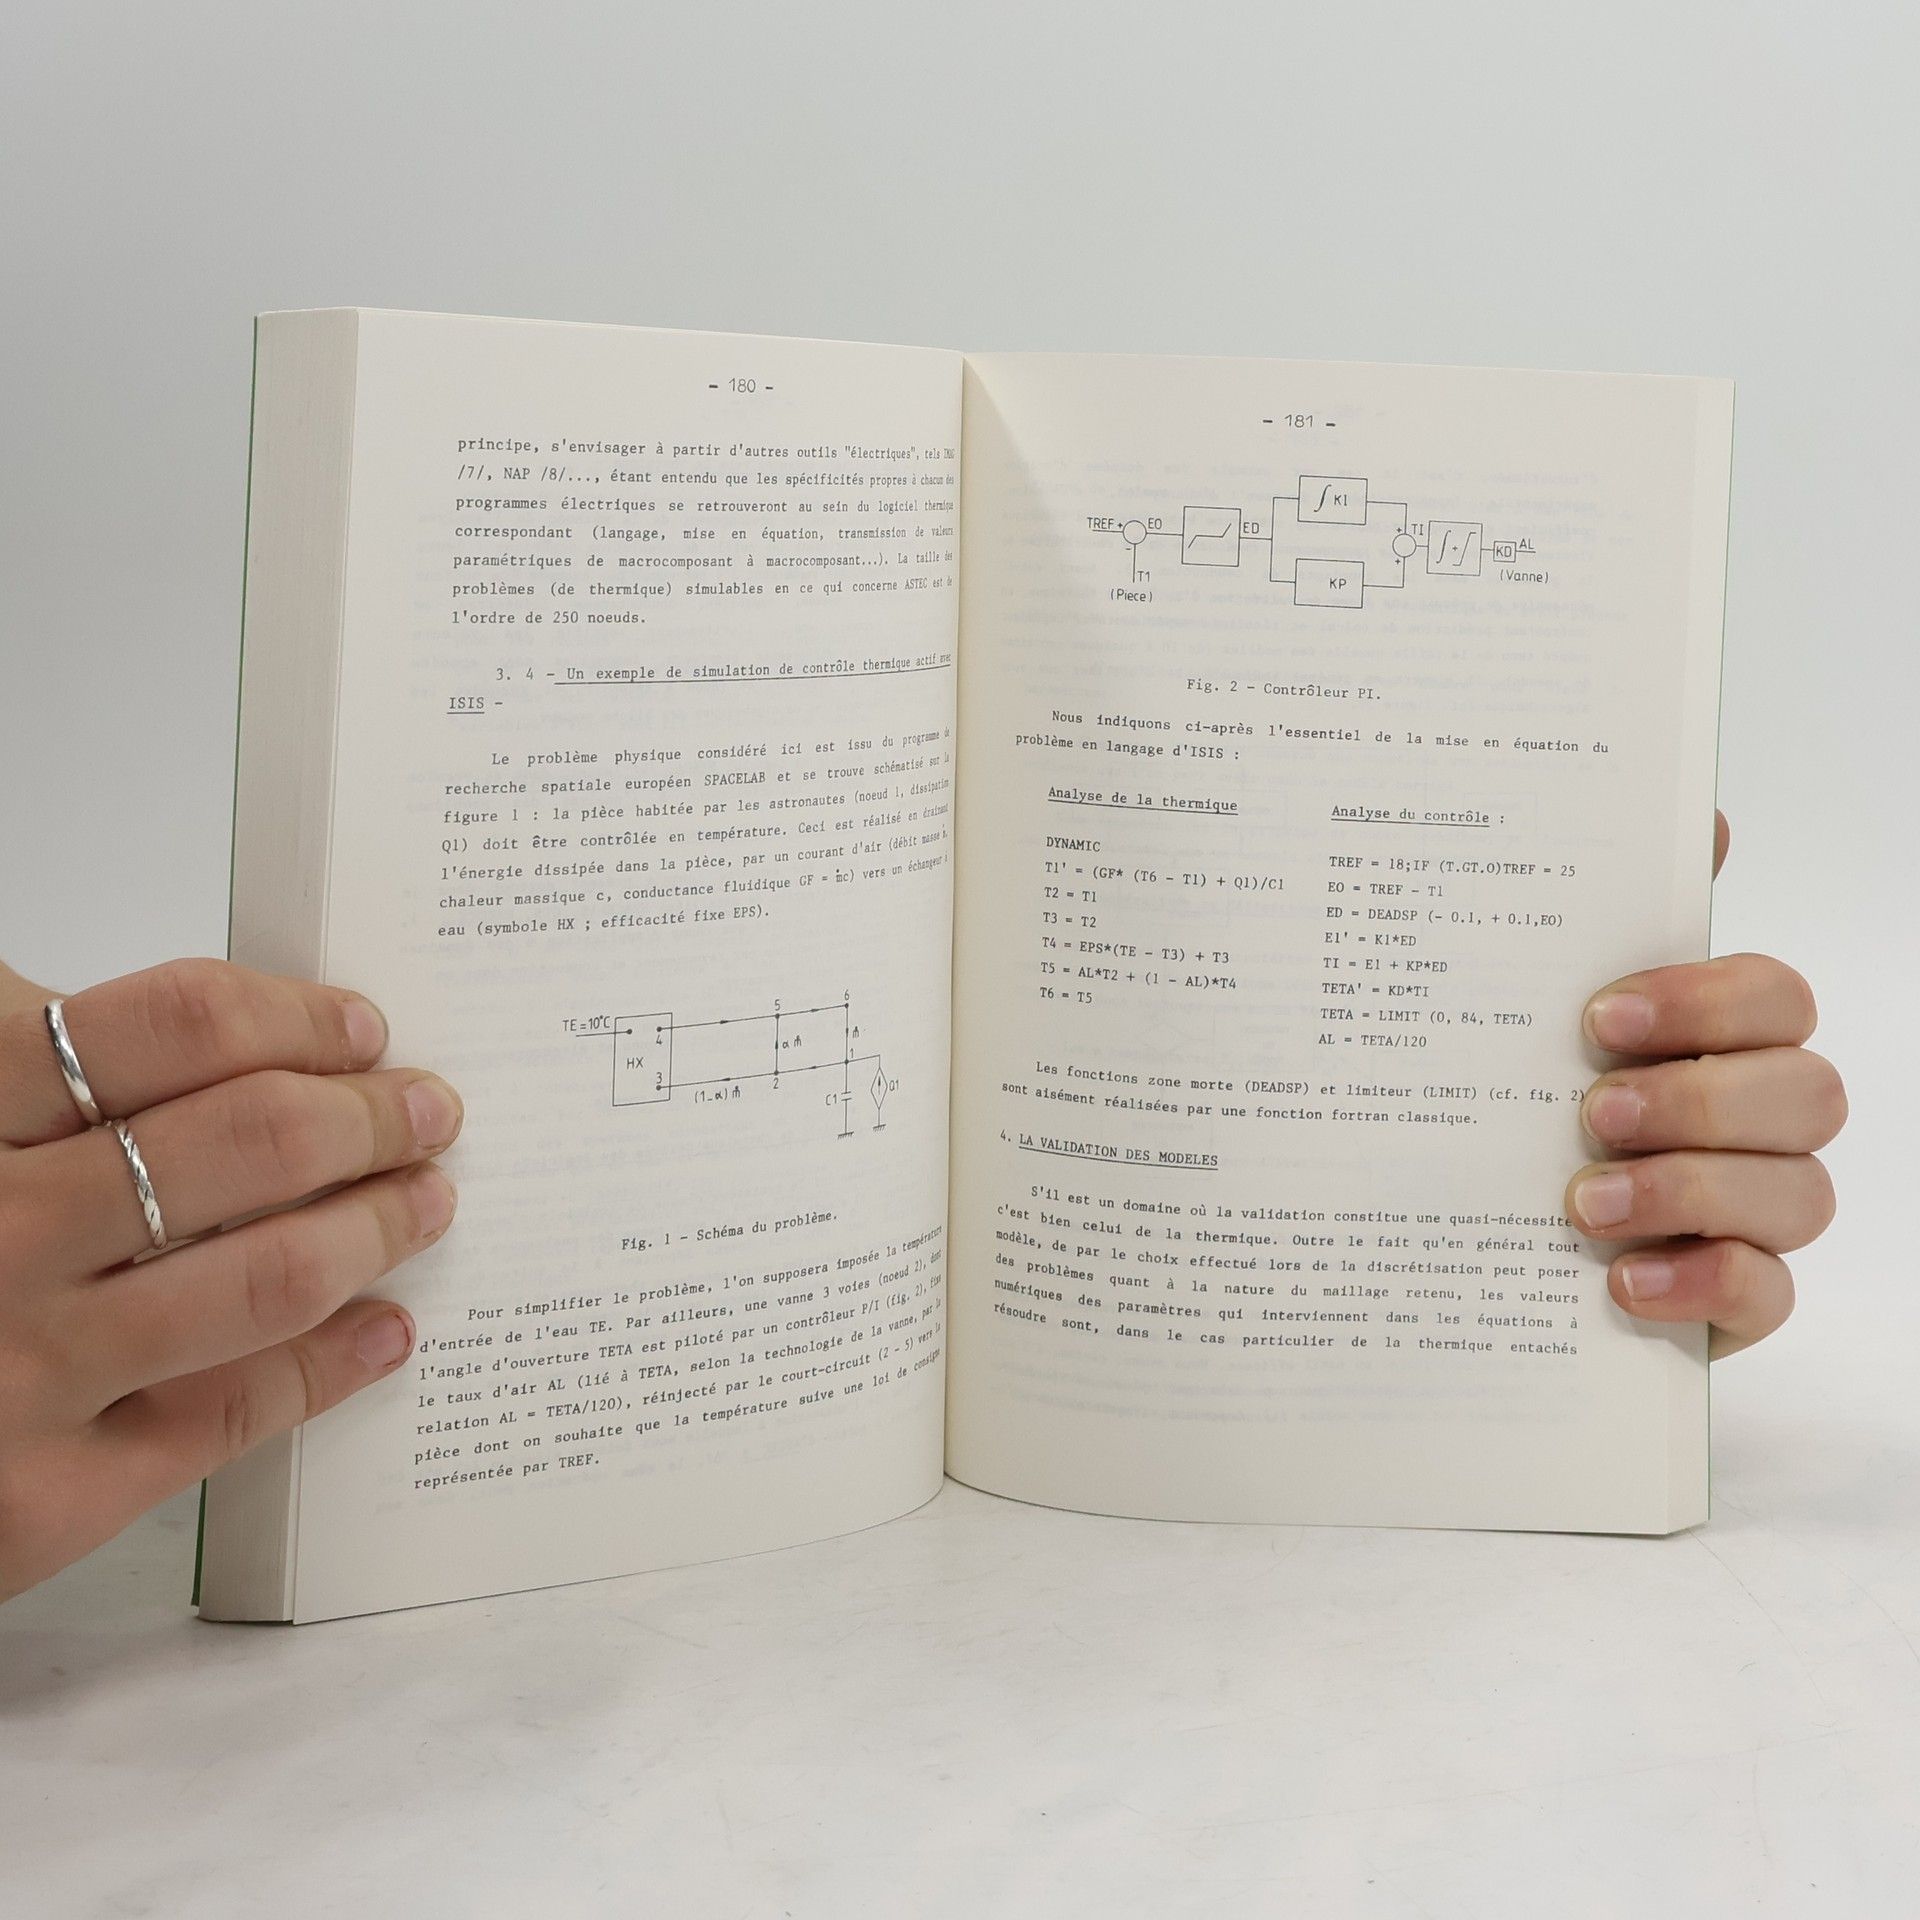 - 180 -
principe, s'envisager à partir d'autres outils "électriques", tels IMAG
/7/, NAP /8/..., étant entendu que les spécificités propres à chacun des
programmes électriques se retrouveront au sein du logiciel thermique
correspondant (langage, mise en équation, transmission de valeurs
paramétriques de macrocomposant à macrocomposant...). La taille des
problèmes (de thermique) simulables en ce qui concerne ASTEC est de
l'ordre de 250 noeuds.
3. 4 - Un exemple de simulation de contrôle thermique actif avec
ISIS -
Le problème physique considéré ici est issu du programme de
recherche spatiale européen SPACELAB et se trouve schématisé sur la
figure 1 : la pièce habitée par les astronautes (noeud 1, dissipation
Q1) doit être contrôlée en température. Ceci est réalisé en drainant
l'énergie dissipée dans la pièce, par un courant d'air (débit masse ṁ,
chaleur massique c, conductance fluidique GF = ṁc) vers un échangeur à
eau (symbole HX ; efficacité fixe EPS).
TE=10°C
HX
4
3
5
6
α ṁ
ṁ
1
2
(1-α) ṁ
C1
Q1
Fig. 1 - Schéma du problème.
Pour simplifier le problème, l'on supposera imposée la température
d'entrée de l'eau TE. Par ailleurs, une vanne 3 voies (noeud 2), dont
l'angle d'ouverture TETA est piloté par un contrôleur P/I (fig. 2), fixe
le taux d'air AL (lié à TETA, selon la technologie de la vanne, par la
relation AL = TETA/120), réinjecté par le court-circuit (2 - 5) vers la
pièce dont on souhaite que la température suive une loi de consigne
représentée par TREF.
- 181 -
TREF +
-
EO
T1
(Piece)
ED
∫ KI
KP
+
+
TI
∫+∫
KD
AL
(Vanne)
Fig. 2 - Contrôleur PI.
Nous indiquons ci-après l'essentiel de la mise en équation du
problème en langage d'ISIS :
Analyse de la thermique
DYNAMIC
T1' = (GF* (T6 - T1) + Q1)/C1
T2 = T1
T3 = T2
T4 = EPS*(TE - T3) + T3
T5 = AL*T2 + (1 - AL)*T4
T6 = T5
Analyse du contrôle :
TREF = 18;IF (T.GT.O)TREF = 25
EO = TREF - T1
ED = DEADSP (- 0.1, + 0.1,EO)
E1' = K1*ED
TI = E1 + KP*ED
TETA' = KD*TI
TETA = LIMIT (0, 84, TETA)
AL = TETA/120
Les fonctions zone morte (DEADSP) et limiteur (LIMIT) (cf. fig. 2)
sont aisément réalisées par une fonction fortran classique.
4. LA VALIDATION DES MODELES
S'il est un domaine où la validation constitue une quasi-nécessité
c'est bien celui de la thermique. Outre le fait qu'en général tout
modèle, de par le choix effectué lors de la discrétisation peut poser
des problèmes quant à la nature du maillage retenu, les valeurs
numériques des paramètres qui interviennent dans les équations à
résoudre sont, dans le cas particulier de la thermique entachés